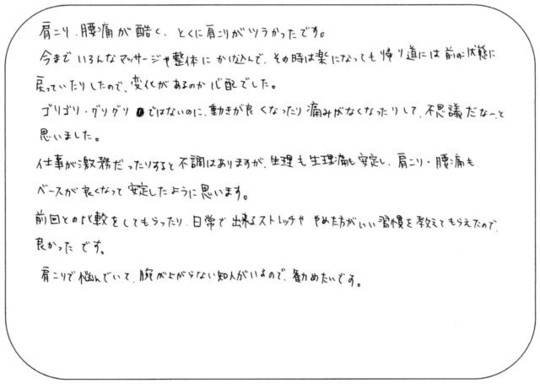 肩こり、腰痛が酷く、とくに肩こりがツラかったです。
今までいろんなマッサージや整体にかけ込んで、その時は楽になっても帰り道には前の状態に
戻っていたりしたので、変化があるのか心配でした。
ゴリゴリ・グリグリではないのに、動きが良くなったり痛みがなくなったりして、不思議だなーと
思いました。
仕事が激務だったりすると不調はありますが、生理も生理痛も安定し、肩こり・腰痛も
ベースが良くなって安定したように思います。
前回との比較をしてもらったり、日常で出来るストレッチややめた方がいい習慣を教えてもらえたので、
良かったです。
肩こりで悩んでいて、腕が上がらない知人がいるので、勧めたいです。